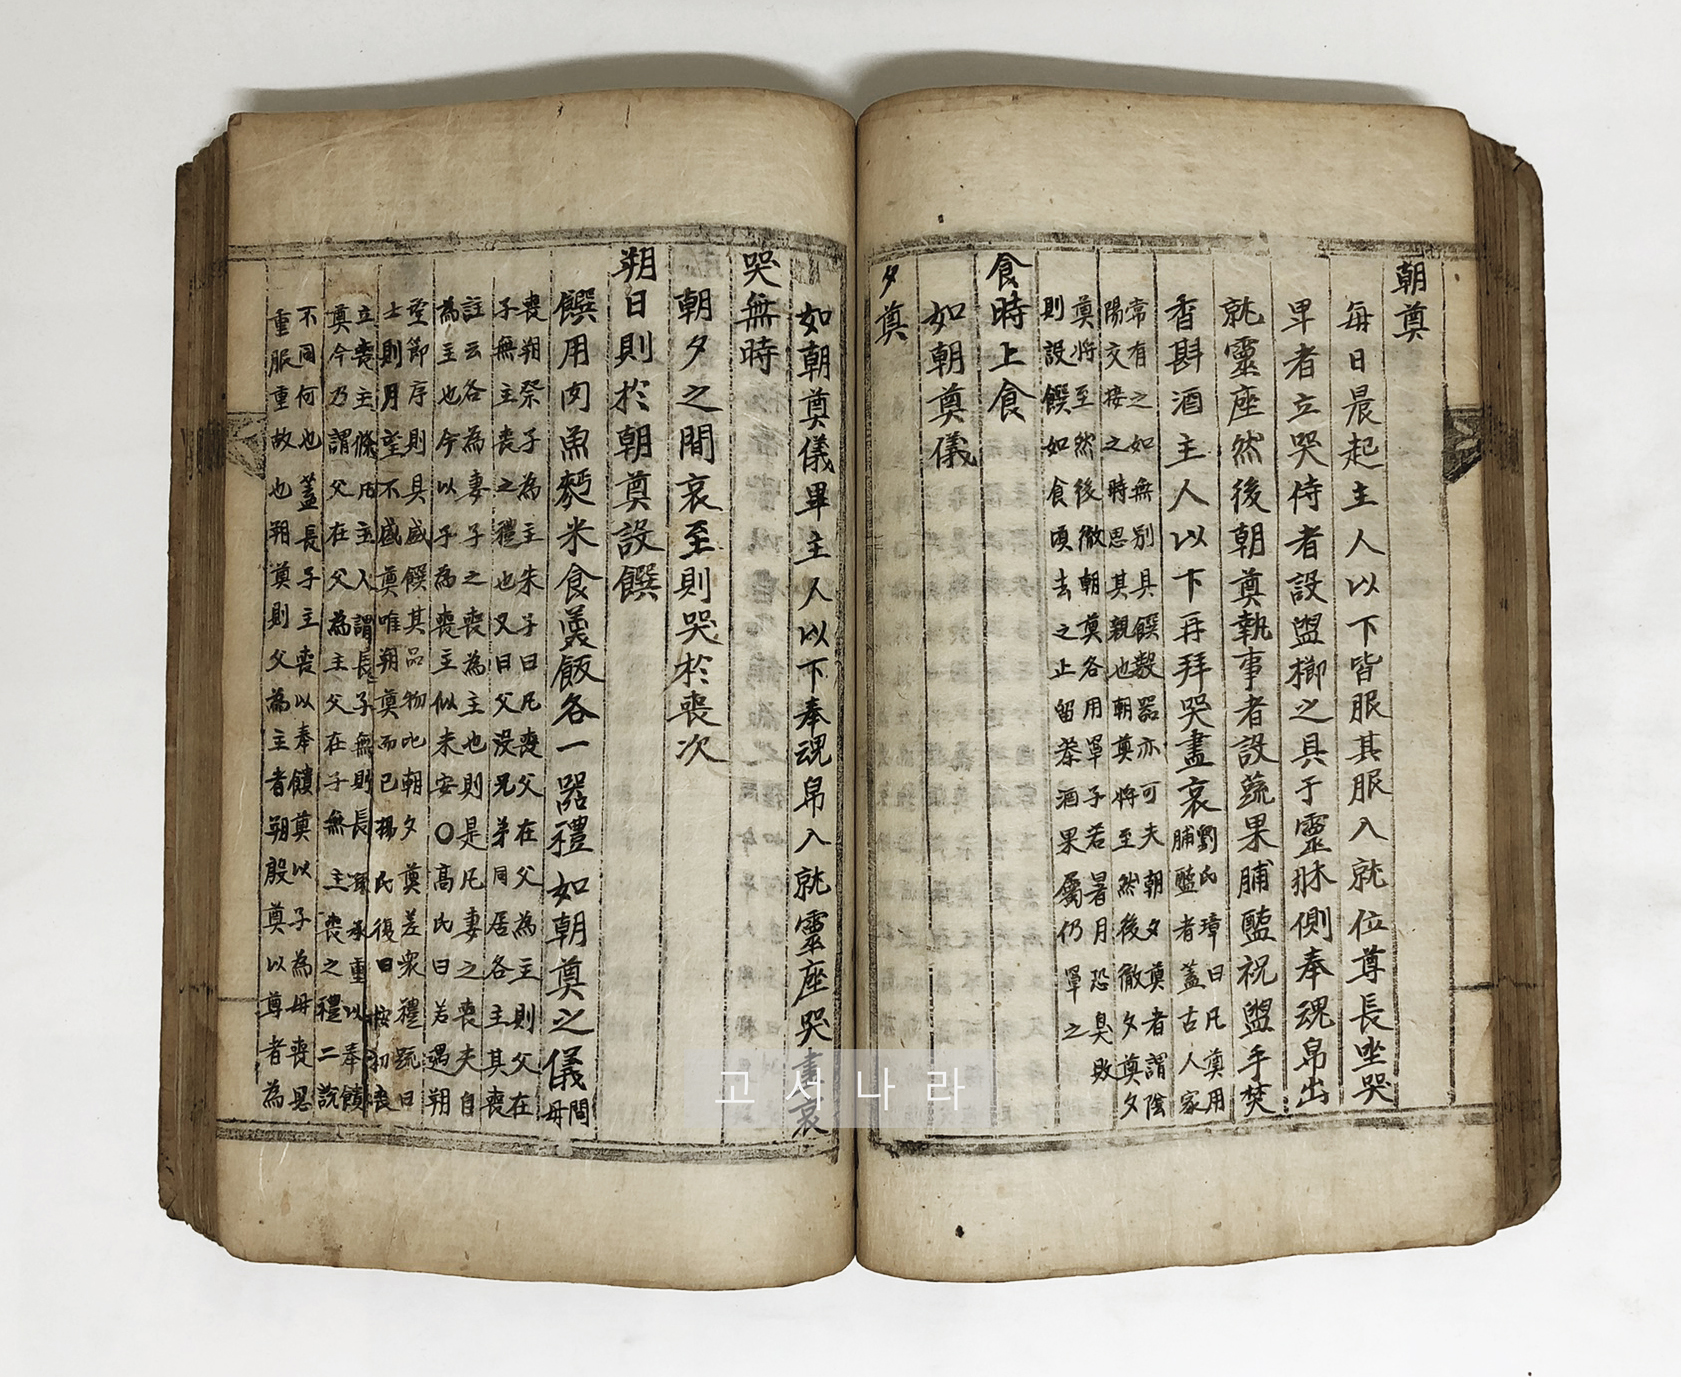 朝奠
每日晨起主人以下皆服其服入就位尊長坐哭
卑者立哭侍者設盥櫛之具于靈牀側奉魂帛出
就靈座然後朝奠執事者設蔬果脯醢祝盥手焚
香斟酒主人以下再拜哭盡哀
劉氏璋曰凡奠用
脯醢者蓋古人家
常有之如無別具饌數器亦可夫朝夕奠者謂陰
陽交接之時思其親也朝奠將至然後徹夕奠夕
奠將至然後徹朝奠各用罩子若暑月恐臭敗
則設饌如食頃去之止留茶酒果屬仍罩之
食時上食
如朝奠儀
夕奠
如朝奠儀畢主人以下奉魂帛入就靈座哭盡哀
哭無時
朝夕之間哀至則哭於喪次
朔日則於朝奠設饌
饌用肉魚麪米食羹飯各一器禮如朝奠之儀
問
母
喪朔祭子為主朱子曰凡喪父在父為主則父在
子無主喪之禮也又曰父沒兄弟同居各主其喪
註云各為妻子之喪為主也則是凡妻之喪夫自
為主也今以子為喪主似未安〇高氏曰若遇朔
望節序則具盛饌其品物比朝夕奠差衆禮䟽曰
士則月望不盛奠唯朔奠而已楊氏復曰按初喪
立喪主條凡主人謂長子無則長孫承重以奉饋
奠今乃謂父在父為主父在子無主喪之禮二說
不同何也蓋長子主喪以奉饋奠以子為母喪恩
重服重故也朔奠則父為主者朔殷奠以尊者為
고서나라